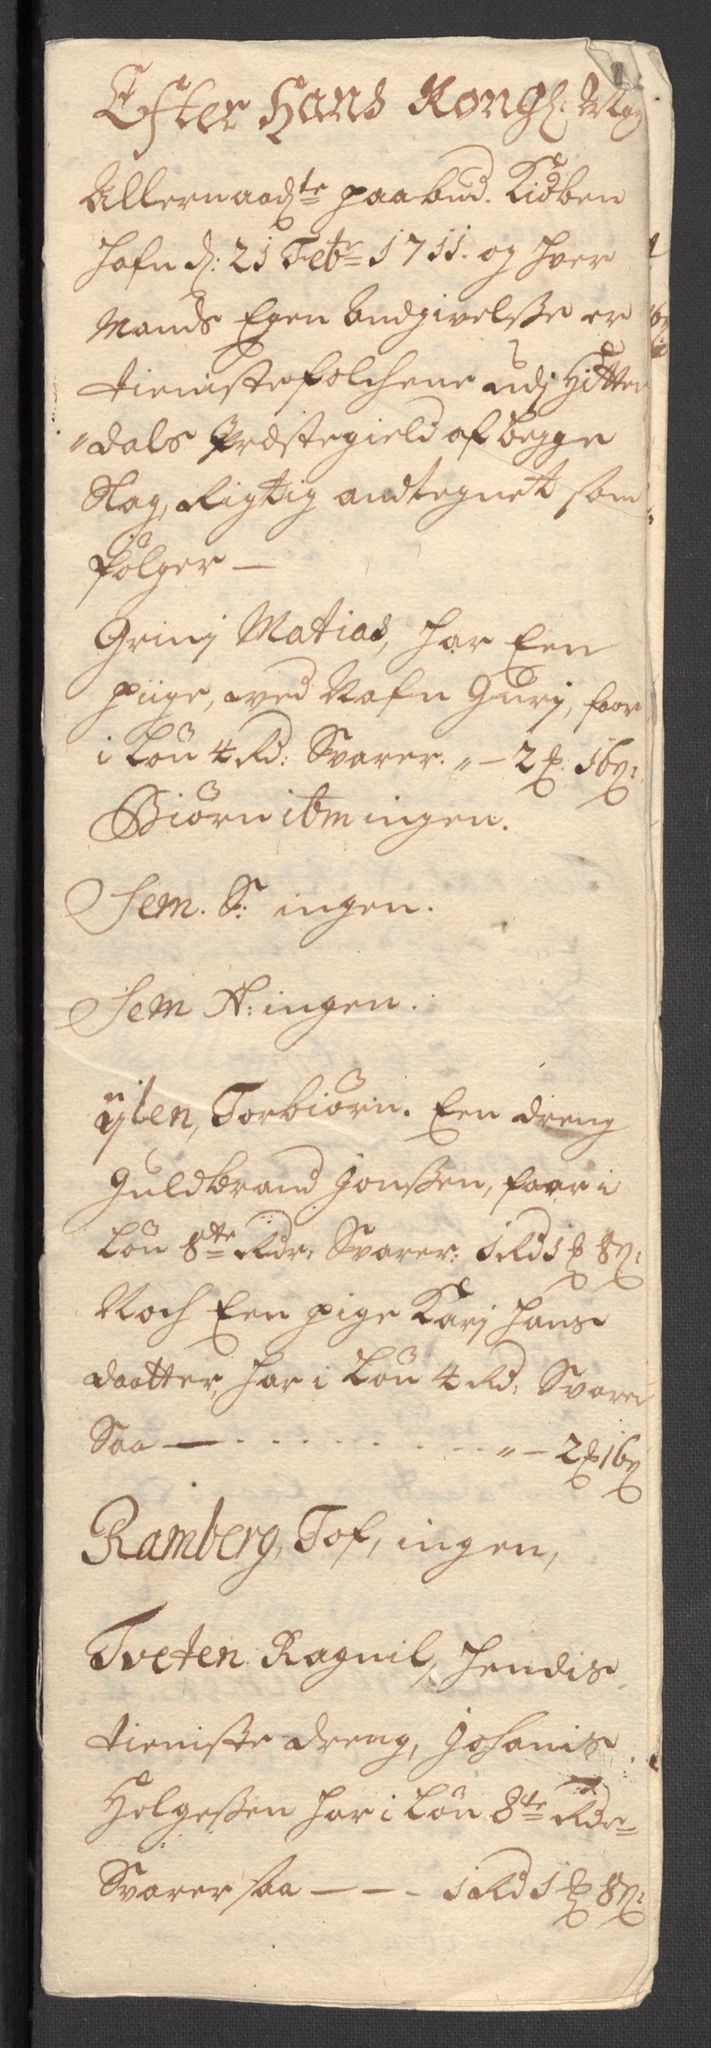 Efter Hans Kongl: May
Allernaadste paabud. Kiøben
hafn d: 21 Febr 1711. og hver
Mands Egen Andgivelsse er
tienistefolchene udj Hitter
"dals Præstegield af begge
Slag, Rigtig andtegnet som
følger —
Grinj Matias, har Een
piige, ved Nafn Gurj, faar
i Løn 4 Rd: Svarer. " — 2 ℔. 16 β:
Biørn ibm ingen.
Sem. S: ingen.
Sem N: ingen.
ÿlen, Torbiørn. Een dreng
Guldbrand Jonssen, faar i
Løn 8te Rdr, Svarer: 1 Rd 1 ℔ 8 β:
Noch Een pige Karj Hans
daatter, har i Løn 4 Rd, Svarer
Saa — . . . . . . . . " — 2 ℔ 16 β
Ramberg, Tof, ingen,
Tveten Ragnil, hendis
tieniste dreng, Johanis
Helgessen har i Løn 8te Rdr
Svarer saa — — — 1 Rd 1 ℔ 8 β: